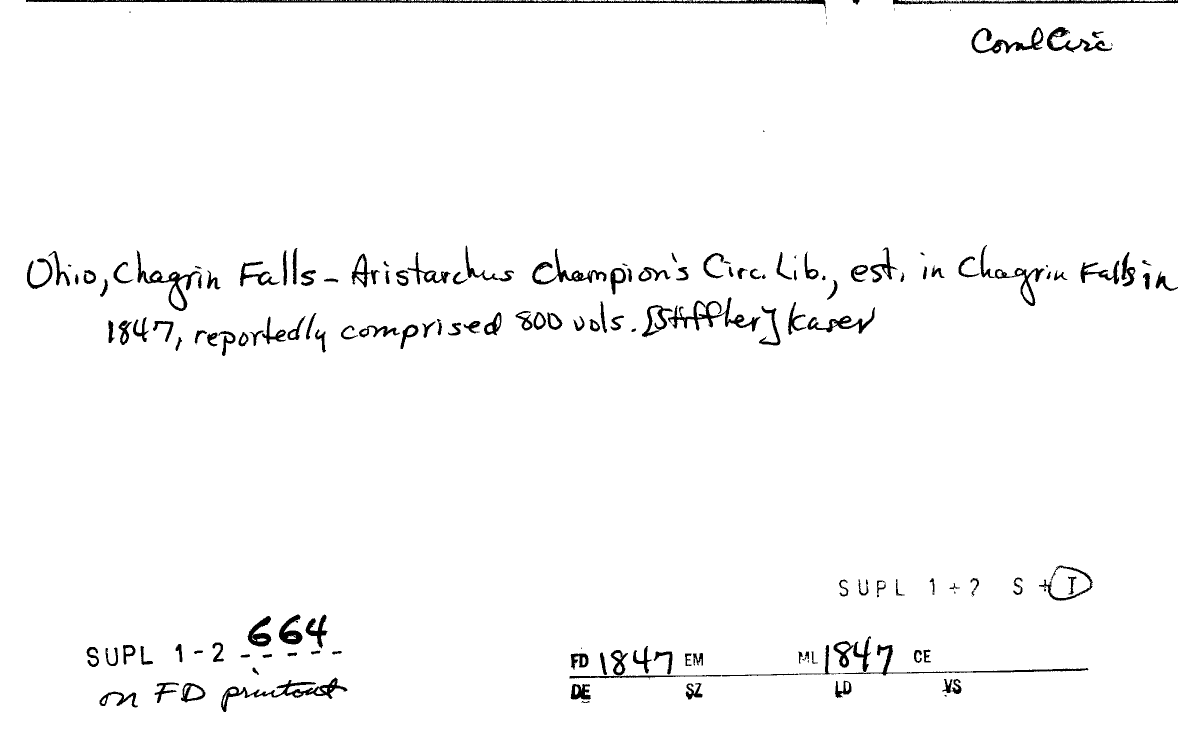 Coml Circ
Ohio, Chagrin Falls - Aristarchus Champion's Circ. Lib., est. in Chagrin Falls in
1847, reportedly comprised 800 vols. [Stiffler] Kaser
SUPL 1+2 S + I
SUPL 1-2 664
on FD printout
FD 1847 EM ML 1847 CE
DE SZ LD VS